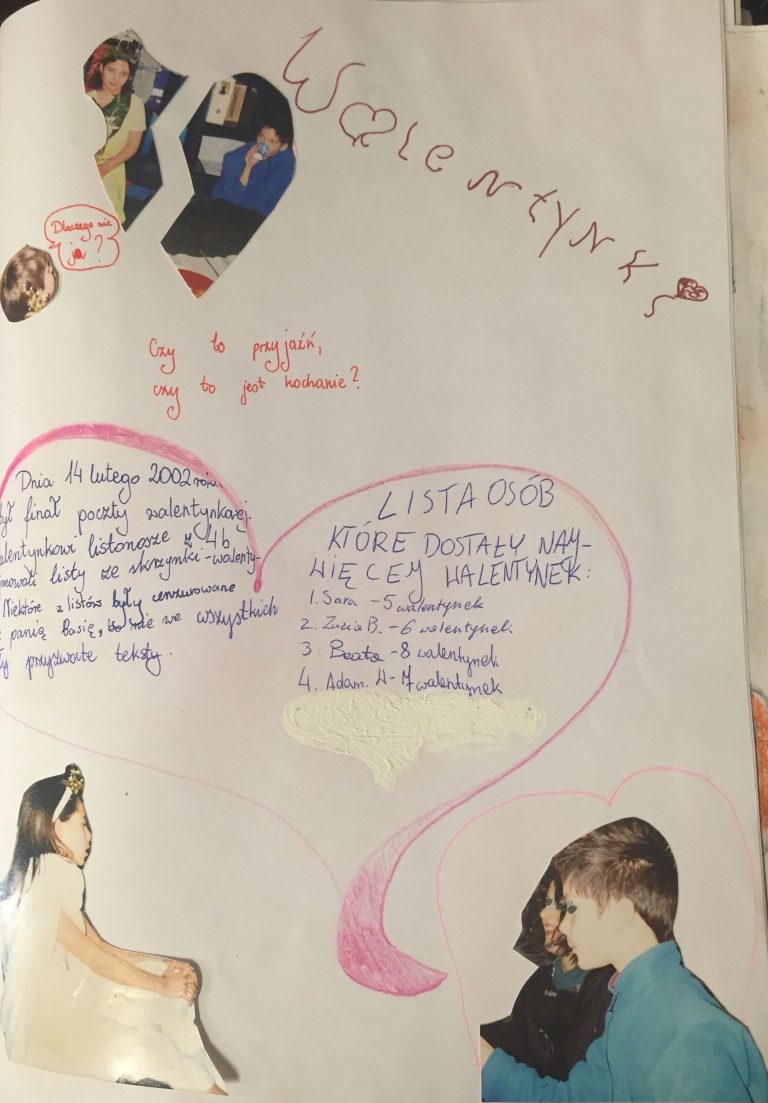 Walentynki
Dlaczego nie
ja?
Czy to przyjaźń,
czy to jest kochanie?
Dnia 14 lutego 2002 roku
był finał poczty walentynkowej.
alentynkowi listonosze z 4b
mowali listy ze skrzynki - walenty-
Niektóre z listów były cenzurowane
panią Basię, bo nie we wszystkich
ły przyzwoite teksty.
LISTA OSÓB
KTÓRE DOSTAŁY NAJ-
WIĘCEJ WALENTYNEK:
1. Sara - 5 walentynek
2. Zuzia B. - 6 walentynek
3. Beata - 8 walentynek
4. Adam. H - 7 walentynek